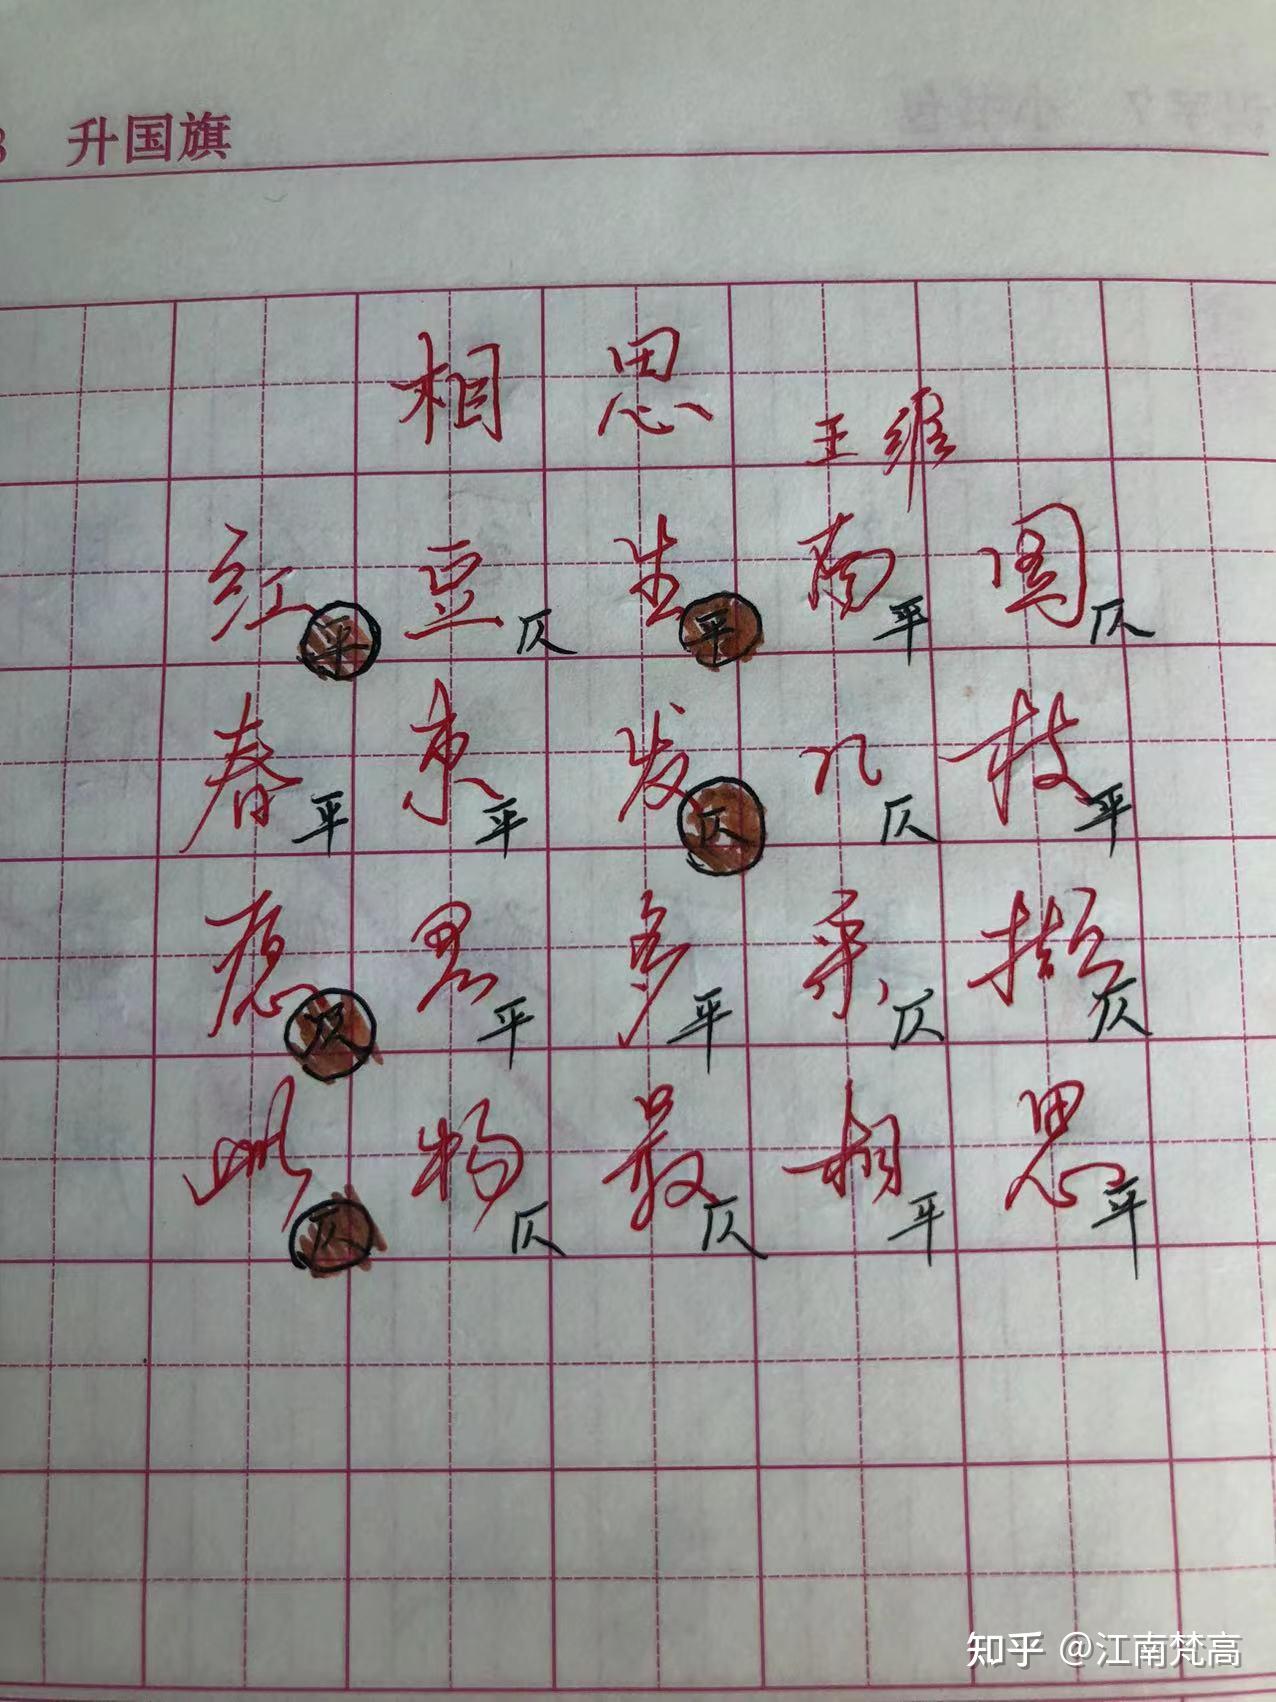 3 升国旗
相思
王维
红平豆仄生平南平国仄
春平来平发仄几仄枝平
愿仄君平多平采仄撷仄
此仄物仄最仄相平思平
知乎 @江南梵高